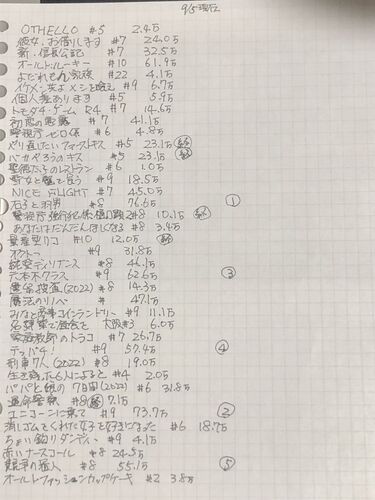 9/5現在
OTHELLO #5 2.4万
彼女、お借りします #7 24.0万
新・信長公記 #7 32.5万
オールドルーキー #10 61.9万
よだれもん家族 #22 4.1万
イケメン共よメシを喰え #9 6.7万
個人差あります #5 5.9万
トモダチゲームR4 #7 14.6万
初恋の悪魔 #7 41.1万
警視庁ゼロ係 #6 4.8万
やり直したいファーストキス #5 23.1万 終
バカやろうのキス #5 23.1万 終
聖徳太子のレストラン #6 1.0万
雪女と蟹を食う #9 18.5万
NICE FLIGHT #7 45.0万
石子と羽男 #8 76.6万 ①
警視庁強行犯係樋口顕2 #8 10.1万 終
あなたはだんだんほしくなる #8 3.4万
量産型リコ #10 12.0万 終
オクトー #9 31.8万
純愛ディソナンス #8 46.1万
六本木クラス #9 62.6万 ③
遺留捜査(2022) #8 14.3万
魔法のリノベ # 47.1万
みなと商事コインランドリー #9 11.1万
名建築で昼食を 大阪#3 6.0万
家庭教師のトラコ #7 26.7万
テッパチ! #9 57.4万 ④
刑事7人(2022) #8 19.0万
生き残った6人によると #4 2.0万
パパと娘の7日間(2022) #6 31.8万
運命警察 #8 終 7.1万
ユニコーンに乗って #9 73.7万 ②
消しゴムをくれた女子を好きになった #6 18.7万
ちょい釣りダンディ #9 4.1万
赤いナースコール #8 24.5万
競争の番人 #8 55.1万 ⑤
オールドファッションカップケーキ #2 3.8万